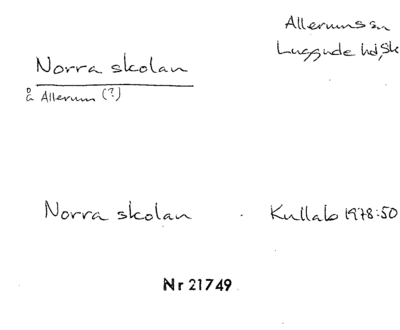 Allerums sn
Luggude hd, Sk
Norra skolan
å Allerum (?)
Norra skolan
Kullab 1978:50
Nr 21749